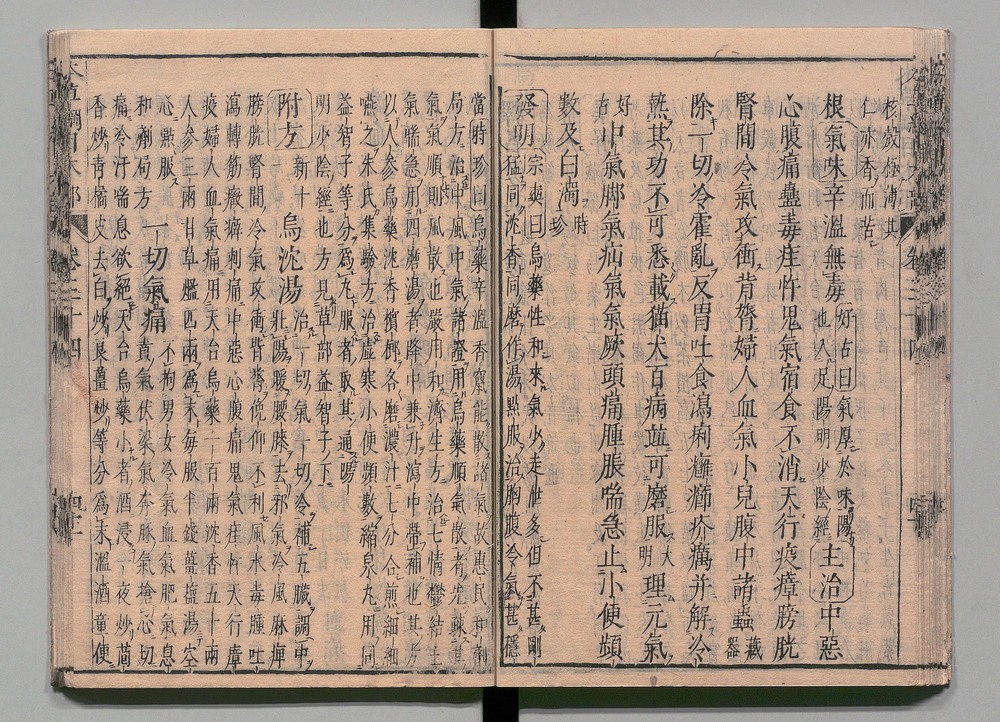 核殼極薄其
仁亦香而苦
根氣味辛溫無毒好古曰氣厚於味陽也入足陽明少陰經主治中惡
心腹痛蠱毒疰忤鬼氣宿食不消天行疫瘴膀胱
腎間冷氣攻衝背膂婦人血氣小兒腹中諸蟲藏器
除一切冷霍亂反胃吐食瀉痢癰癤疥癘并解冷
熱其功不可悉載猫犬百病並可磨服大明理元氣
好古中氣脚氣疝氣氣厥頭痛腫脹喘急止小便頻
數及白濁時珍
發明宗奭曰烏藥性和來氣少走泄多但不甚剛
猛同沈香同磨作湯點服治胸腹冷氣甚穩
當時珍曰烏藥辛溫香竄能散諸氣故惠民和劑
局方治中風中氣諸證用烏藥順氣散者先疎其
氣氣順則風散也嚴用和濟生方治七情鬱結上
氣喘急用四磨湯者降中兼升瀉中帶補也其方
以人參烏藥沈香檳榔各磨濃汁七分合煎細細
嚥之朱氏集驗方治虛寒小便頻數縮泉丸用同
益智子等分爲丸服者取其通陽
明少陰經也方見草部益智子下
附方新十烏沈湯治一切氣一切冷補五臟調中壯陽暖腰膝去邪氣冷風麻痺
膀胱腎間冷氣攻衝背膂俛仰不利風水毒腫吐
瀉轉筋癥癖刺痛中惡心腹痛鬼氣疰忤天行瘴
疫婦人血氣痛用天台烏藥一百兩沈香五十兩
人參三兩甘草爁四兩爲末每服半錢薑鹽湯空
心點服和劑局方一切氣痛不拘男女冷氣血氣肥氣息賁氣伏梁氣奔豚氣搶心切
痛冷汗喘息欲絕天台烏藥小者酒浸一夜炒茴
香炒青橘皮去白炒良薑炒等分爲末溫酒童便
卷三十四